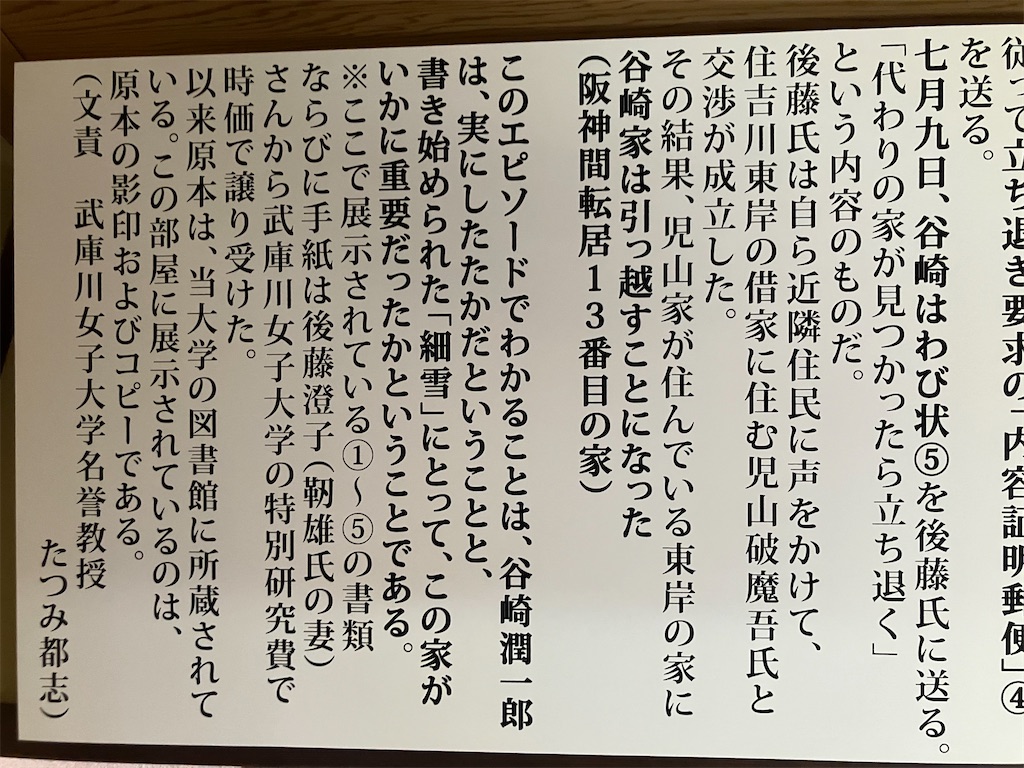 従って立ち退き要求の「内容証明郵便」④
を送る。
七月九日、谷崎はわび状⑤を後藤氏に送る。
「代わりの家が見つかったら立ち退く」
という内容のものだ。
後藤氏は自ら近隣住民に声をかけて、
住吉川東岸の借家に住む児山破魔吾氏と
交渉が成立した。
その結果、児山家が住んでいる東岸の家に
谷崎家は引っ越すことになった
(阪神間転居13番目の家)
このエピソードでわかることは、谷崎潤一郎
は、実にしたたかだということと、
書き始められた「細雪」にとって、この家が
いかに重要だったかということである。
※ここで展示されている①~⑤の書類
ならびに手紙は後藤澄子(靭雄氏の妻)
さんから武庫川女子大学の特別研究費で
時価で譲り受けた。
以来原本は、当大学の図書館に所蔵されて
いる。この部屋に展示されているのは、
原本の影印およびコピーである。
(文責 武庫川女子大学名誉教授
たつみ都志)